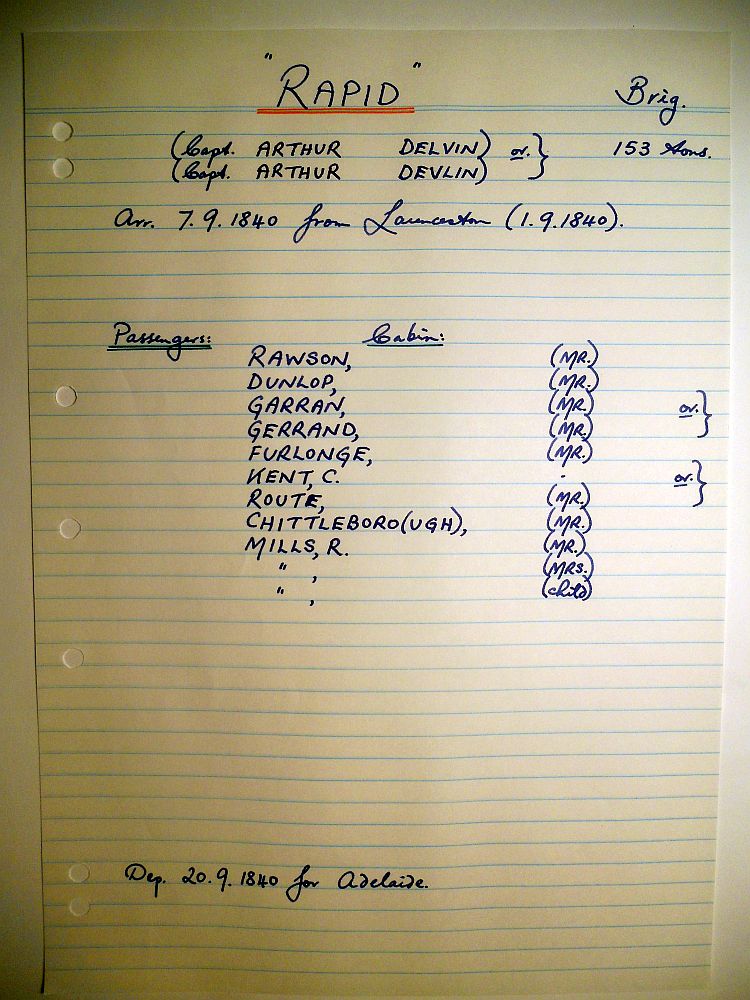 "RAPID" Brig.
(Capt. ARTHUR DELVIN) or. } 153 tons.
(Capt. ARTHUR DEVLIN)
Arr. 7.9.1840 from Launceston (1.9.1840).
Passengers: Cabin:
RAWSON, (MR.)
DUNLOP, (MR.)
GARRAN, (MR.) or. }
GERRAND, (MR.)
FURLONGE, (MR.)
KENT, C. . or. }
ROUTE, (MR.)
CHITTLEBORO(UGH), (MR.)
MILLS, R. (MR.)
" , (MRS.)
" , (child)
Dep. 20.9.1840 for Adelaide.